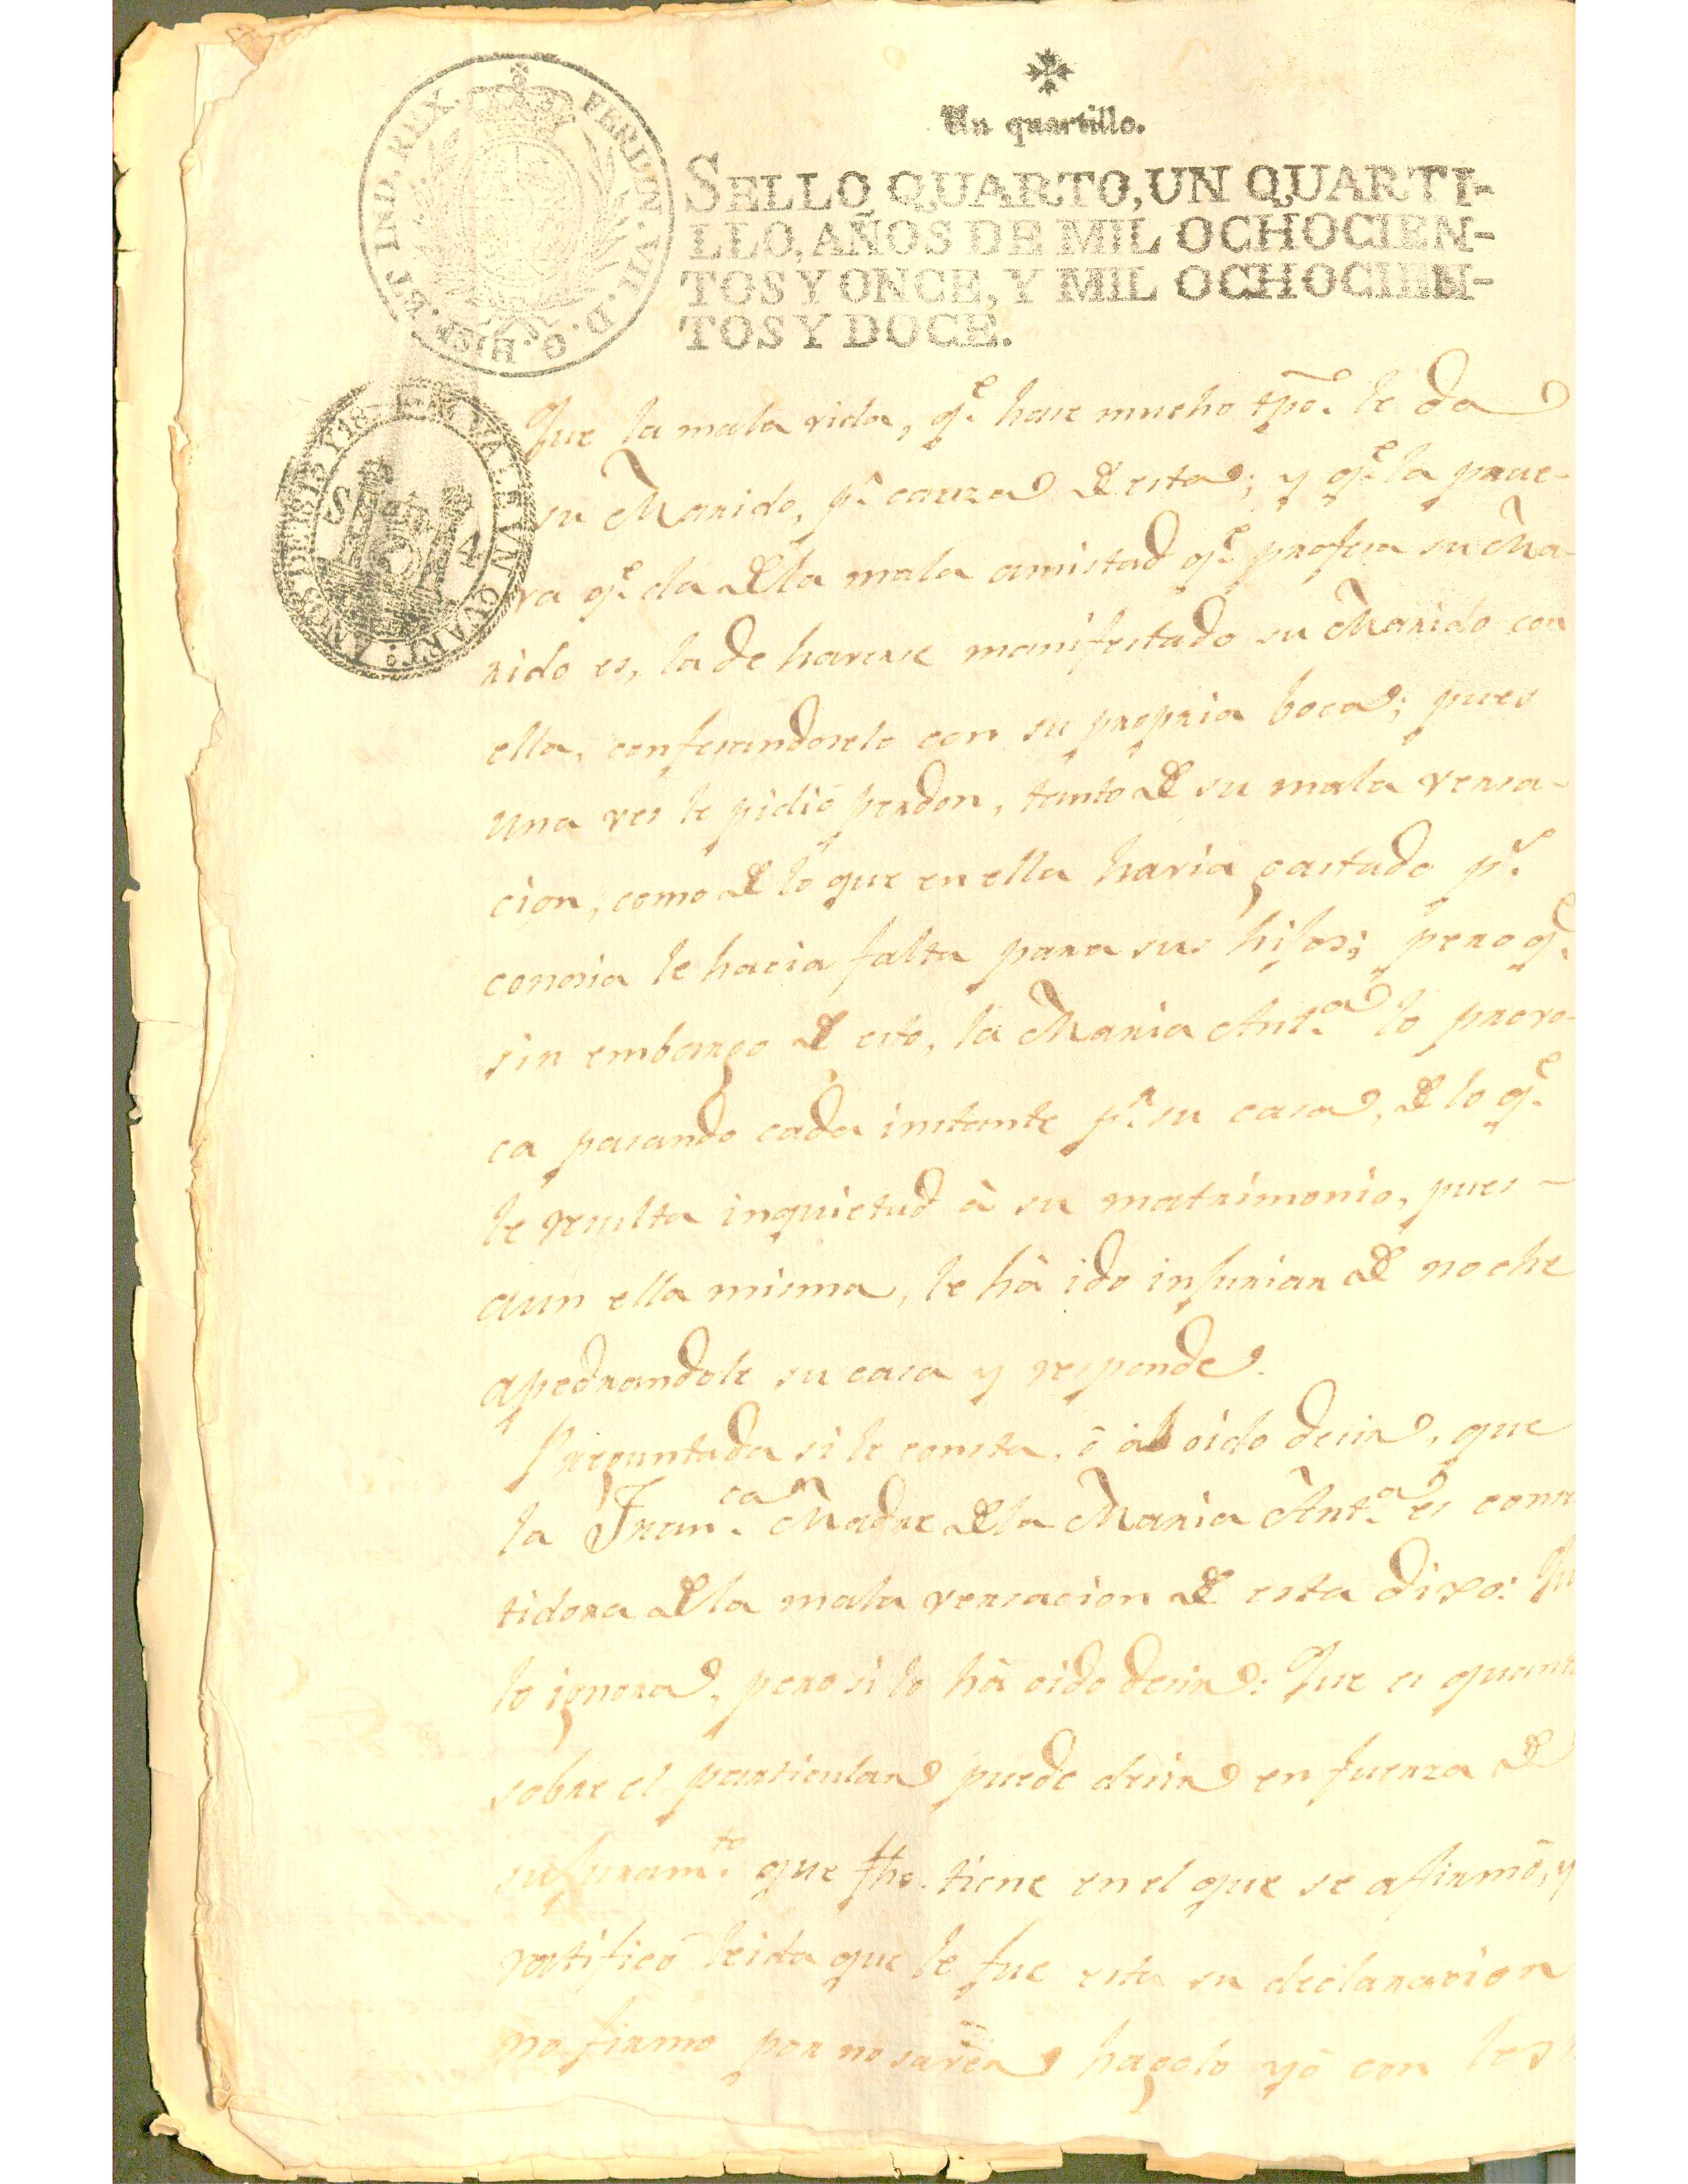 Un quartillo.
SELLO QUARTO, UN QUARTI-
LLO, AÑOS DE MIL OCHOCIEN-
TOS Y ONCE, Y MIL OCHOCIEN-
TOS Y DOCE.
FERDIN. VII. D. G. HISP. ET IND. REX
AÑOS DE 1813 Y 18 VAL. E VN CVART:
S 4
Que la mala vida, qe. hace mucho tpo. le da
su Marido, pr. causa de esta; y qe. la prue-
va qe. da de la mala amistad qe. profesa su Ma-
rido es, la de haverse manifestado su Marido con
ella, confesandoselo con su propria boca; pues
una ves le pidió perdon, tanto de su mala versa-
cion, como de lo que en ella havia gastado pr.
conosia le hacia falta para sus hijos; pero qe.
sin embargo de esto, la Maria Anta. lo provo-
ca pasando cada instante pr. su casa, de lo qe.
le resulta inquietud à su matrimonio, pues
aun ella misma, le hà ido injuriar de noche
apedrandole su casa y responde.
Preguntada si le consta, ô à oido desir, que
la Franca. Madre de la Maria Anta. es conn
tidora de la mala versacion de esta dixo: Qu
lo ignora, pero si lo hà oido desir: Que es quanto
sobre el particular puede desir en fuerza de
su juramto. que fho. tiene en el que se afirmó, y
ratificó leida que le fue esta su declaracion
no firmo por no saver hagolo yó con los